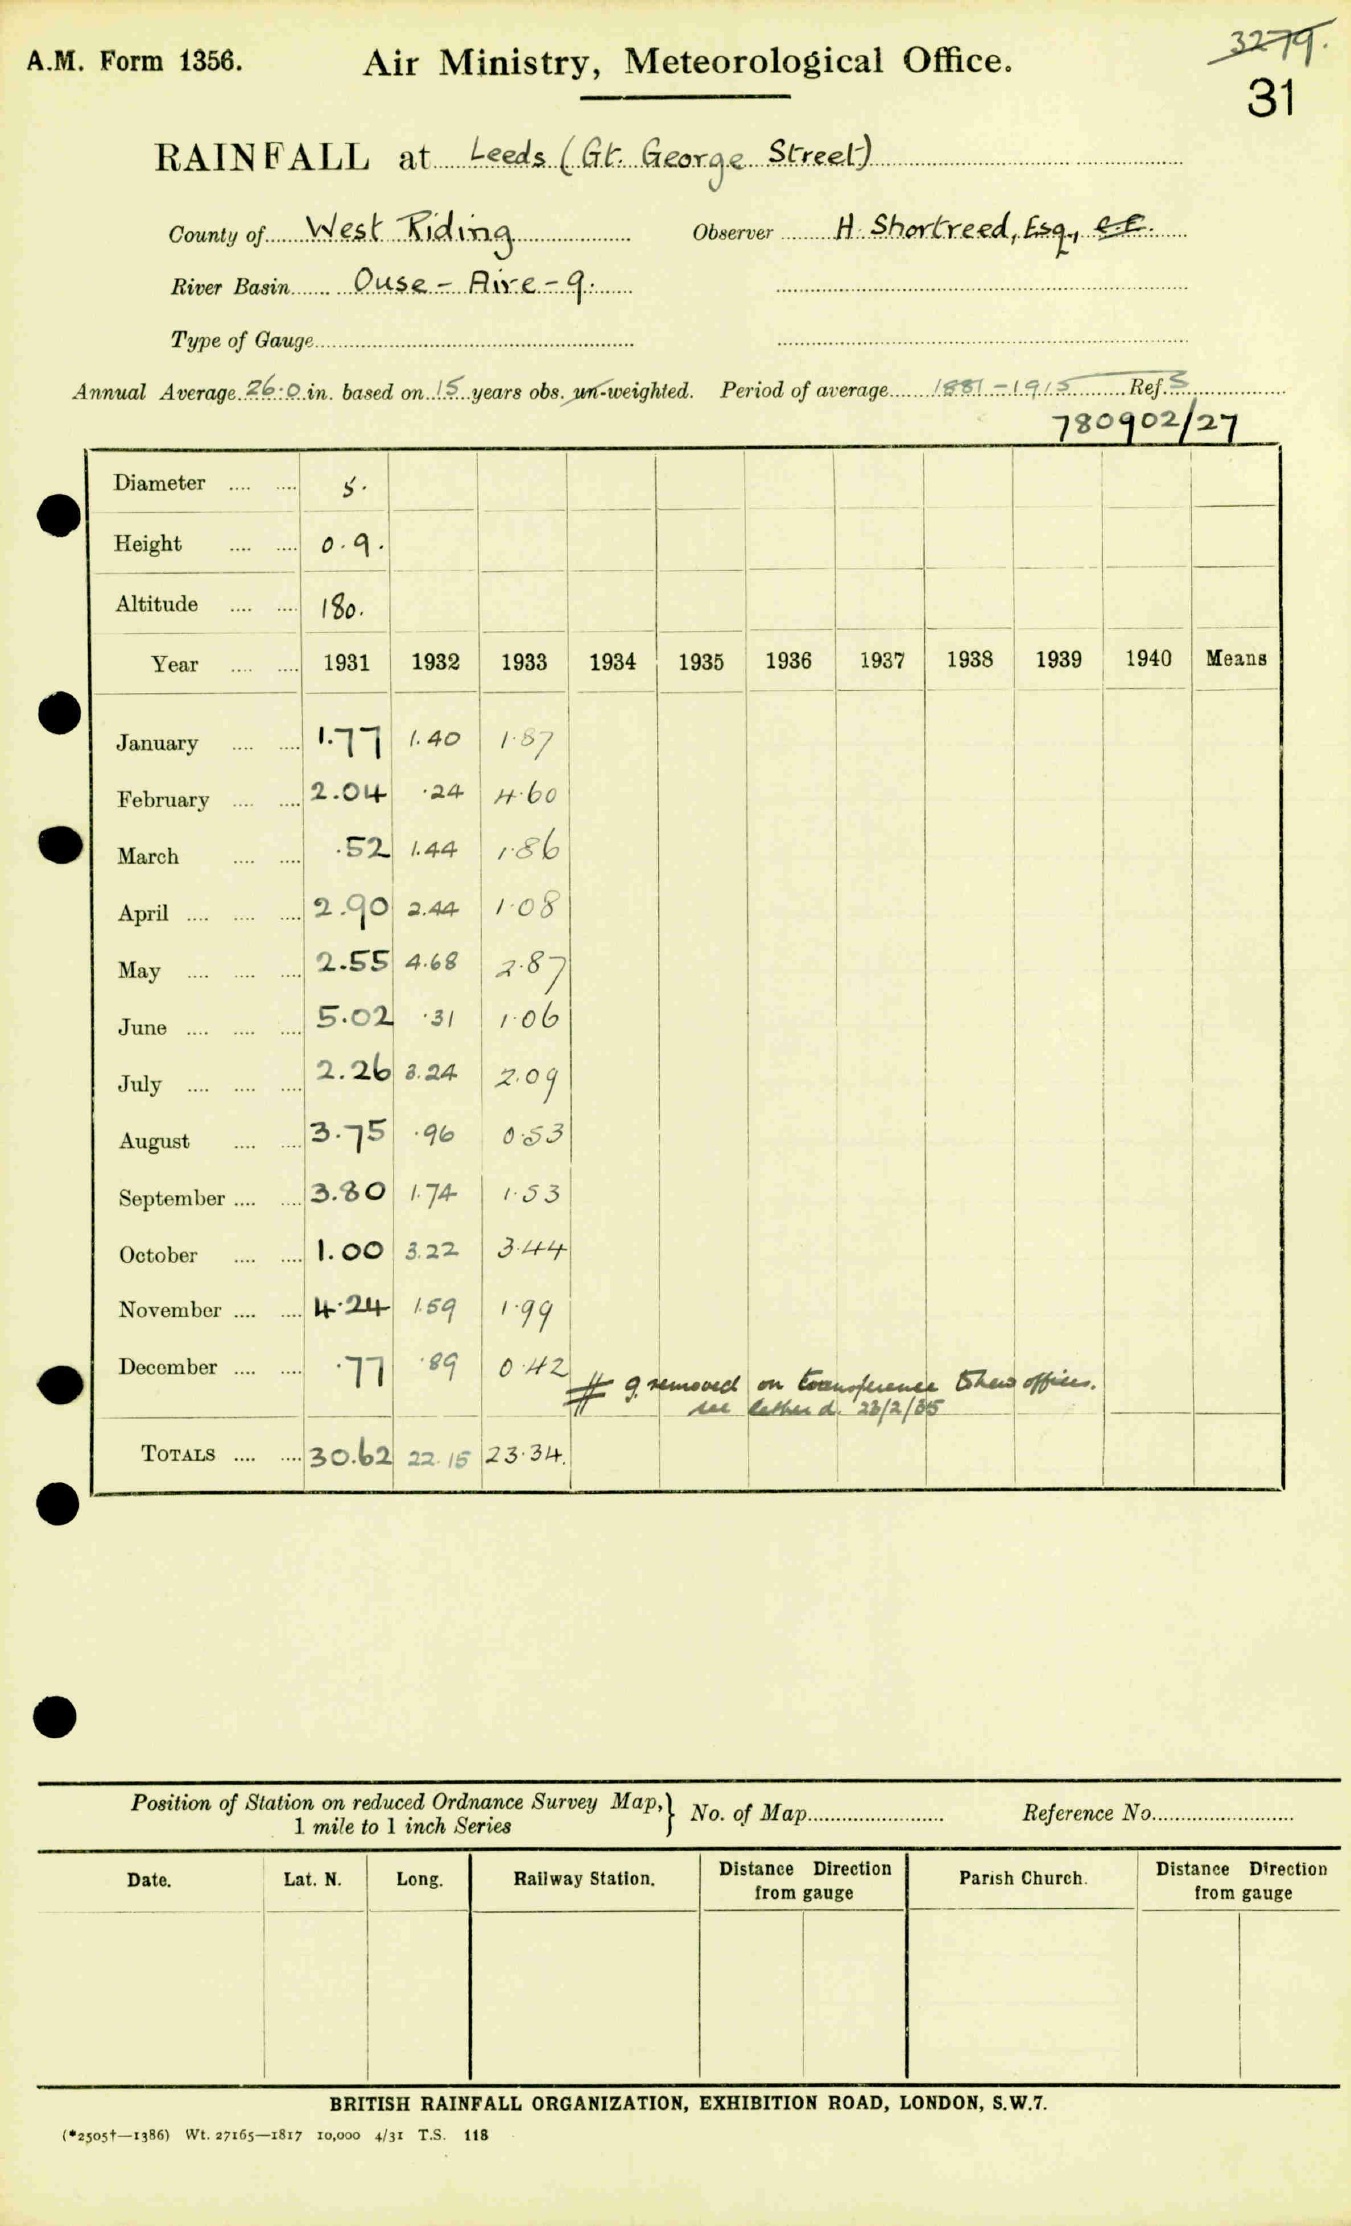 3279.
A.M. Form 1356. Air Ministry, Meteorological Office.
31
RAINFALL at Leeds (Gt. George Street)
County of West Riding Observer H. Shortreed, Esq., C.E.
River Basin Ouse - Aire - 9.
Type of Gauge
Annual Average 26.0 in. based on 15 years obs. un-weighted. Period of average 1881-1915 Ref. S
780902/27
Diameter .... .... 5.
Height .... .... 0.9.
Altitude .... .... 180.
Year .... .... 1931 1932 1933 1934 1935 1936 1937 1938 1939 1940 Means
January .... .... 1.77 1.40 1.87
February .... .... 2.04 .24 4.60
March .... .... .52 1.44 1.86
April .... .... .... 2.90 2.44 1.08
May .... .... .... 2.55 4.68 2.87
June .... .... .... 5.02 .31 1.06
July .... .... .... 2.26 3.24 2.09
August .... .... 3.75 .96 0.53
September .... .... 3.80 1.74 1.53
October .... .... 1.00 3.22 3.44
November .... .... 4.24 1.59 1.99
December .... .... .77 .89 0.42
# g. removed on transference to new offices.
see letter d. 23/2/35
TOTALS .... .... 30.62 22.15 23.34.
Position of Station on reduced Ordnance Survey Map, } No. of Map Reference No.
1 mile to 1 inch Series
Date. Lat. N. Long. Railway Station. Distance Direction from gauge Parish Church. Distance Direction from gauge
BRITISH RAINFALL ORGANIZATION, EXHIBITION ROAD, LONDON, S.W.7.
(*2505†—1386) Wt. 27165—1817 10,000 4/31 T.S. 118